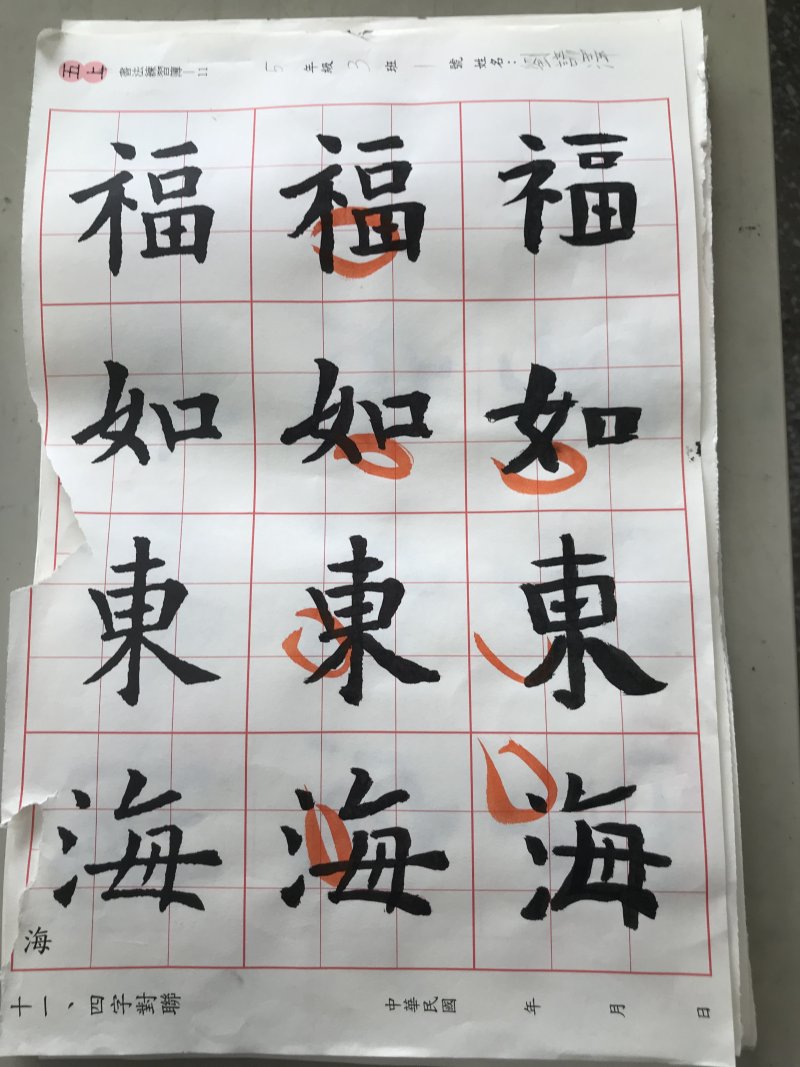 五上 書法練習簿—11 5 年級 3 班 1 號 姓名：
福 福 福
如 如 如
東 東 東
海 海 海
海
十一、四字對聯 中華民國 年 月 日